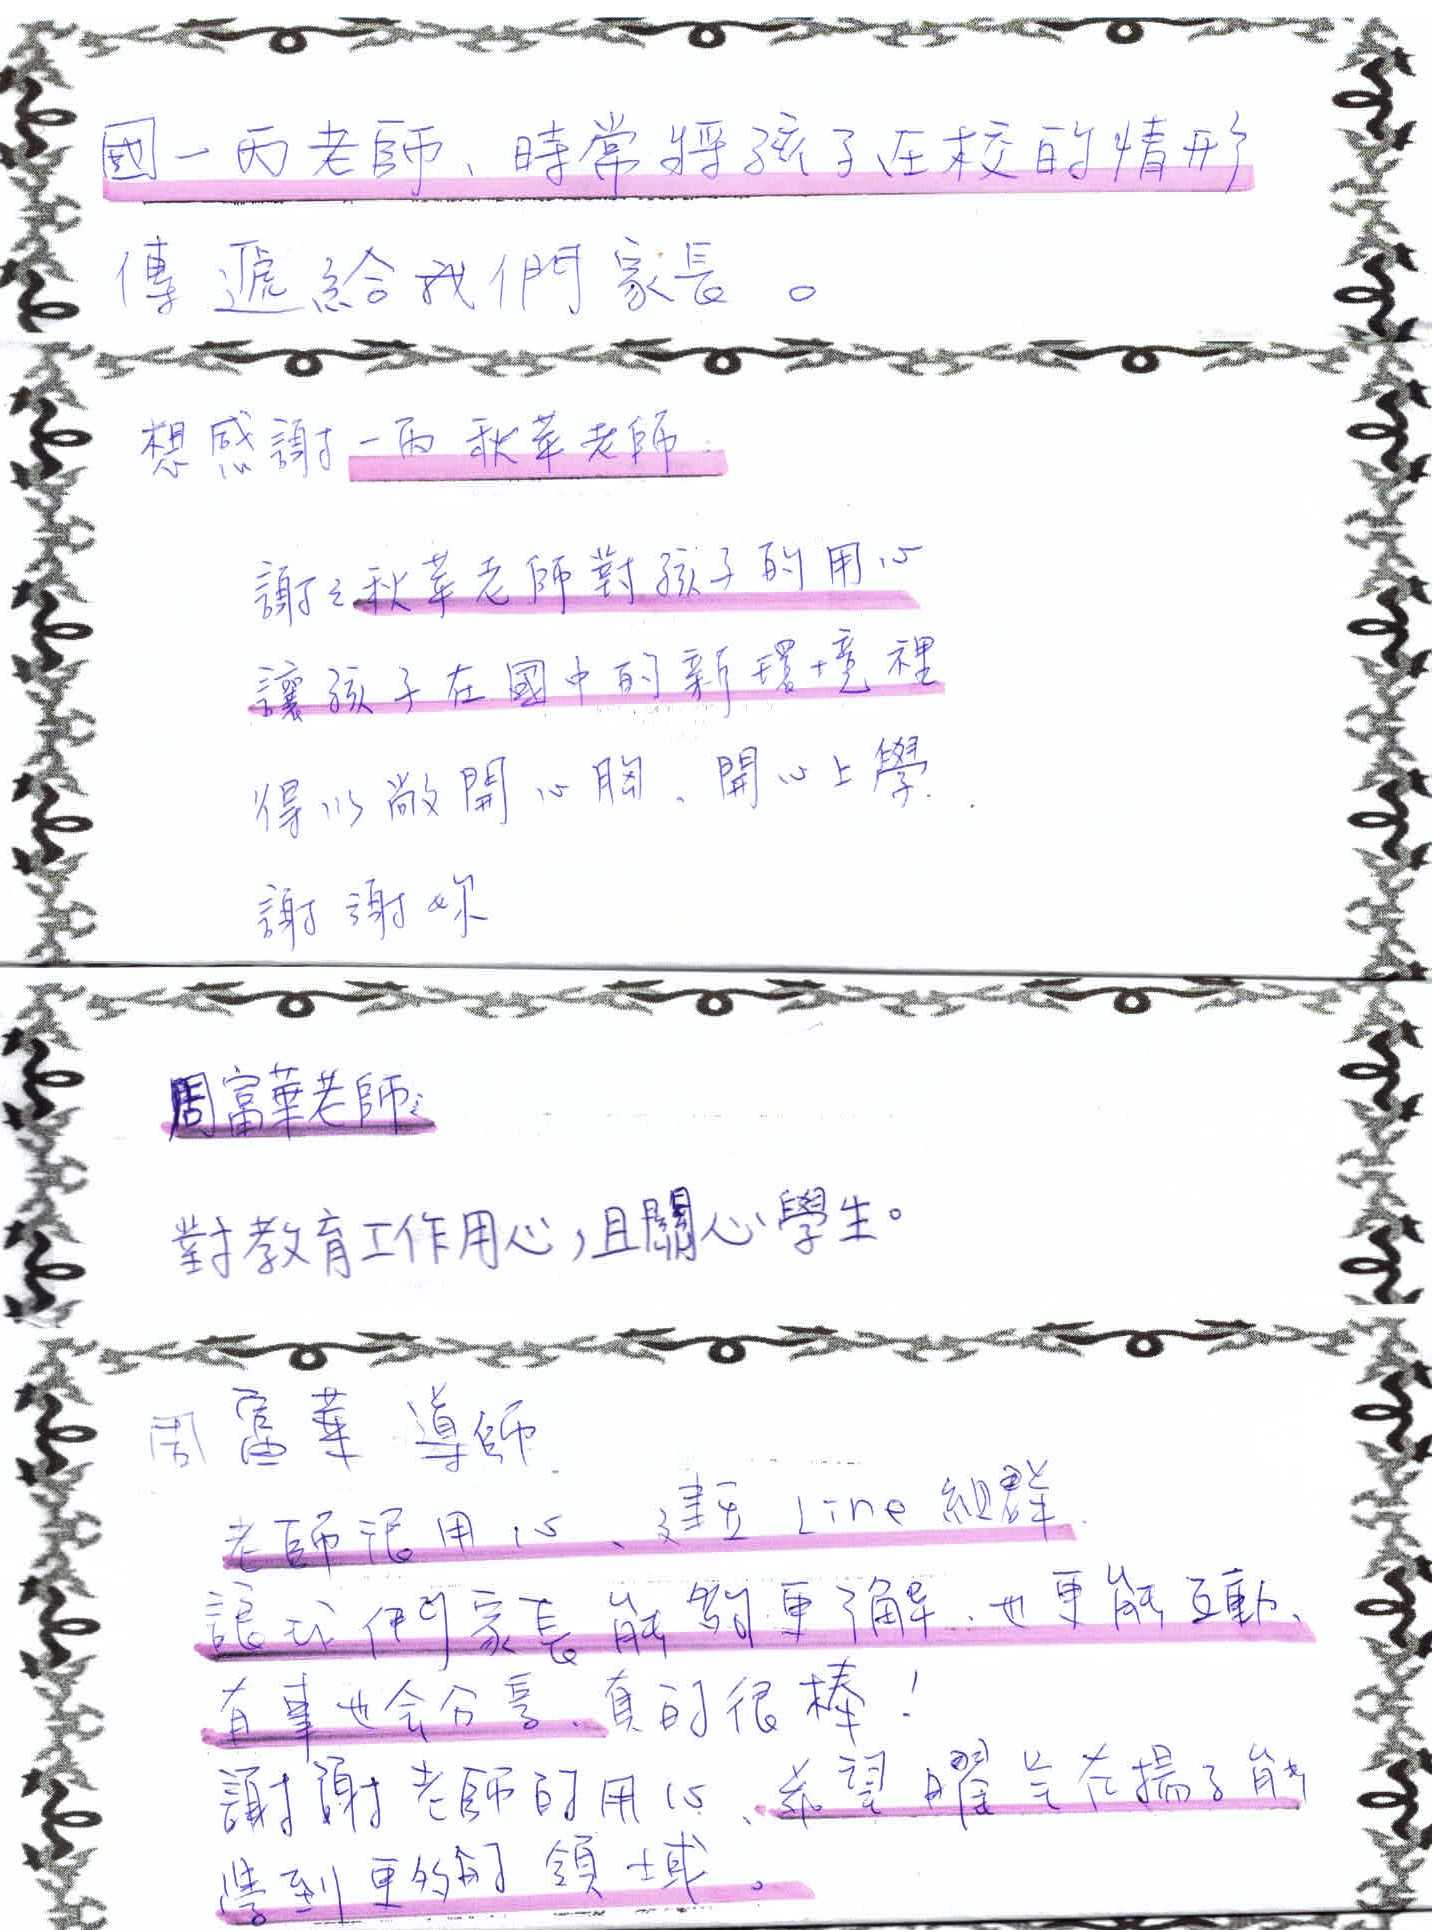 國一丙老師、時常將孩子在校的情形
傳遞給我們家長。
想感謝一丙秋華老師:
謝々秋華老師對孩子的用心
讓孩子在國中的新環境裡
得以敞開心胸、開心上學.
謝謝妳
周富華老師:
對教育工作用心,且關心學生。
周富華 導師
老師很用心、建立 Line 組群.
讓我們家長能夠更了解、也更能互動、
有事也会分享、真的很棒!
謝謝老師的用心、希望曜竺在揚子能
學到更多的領域。